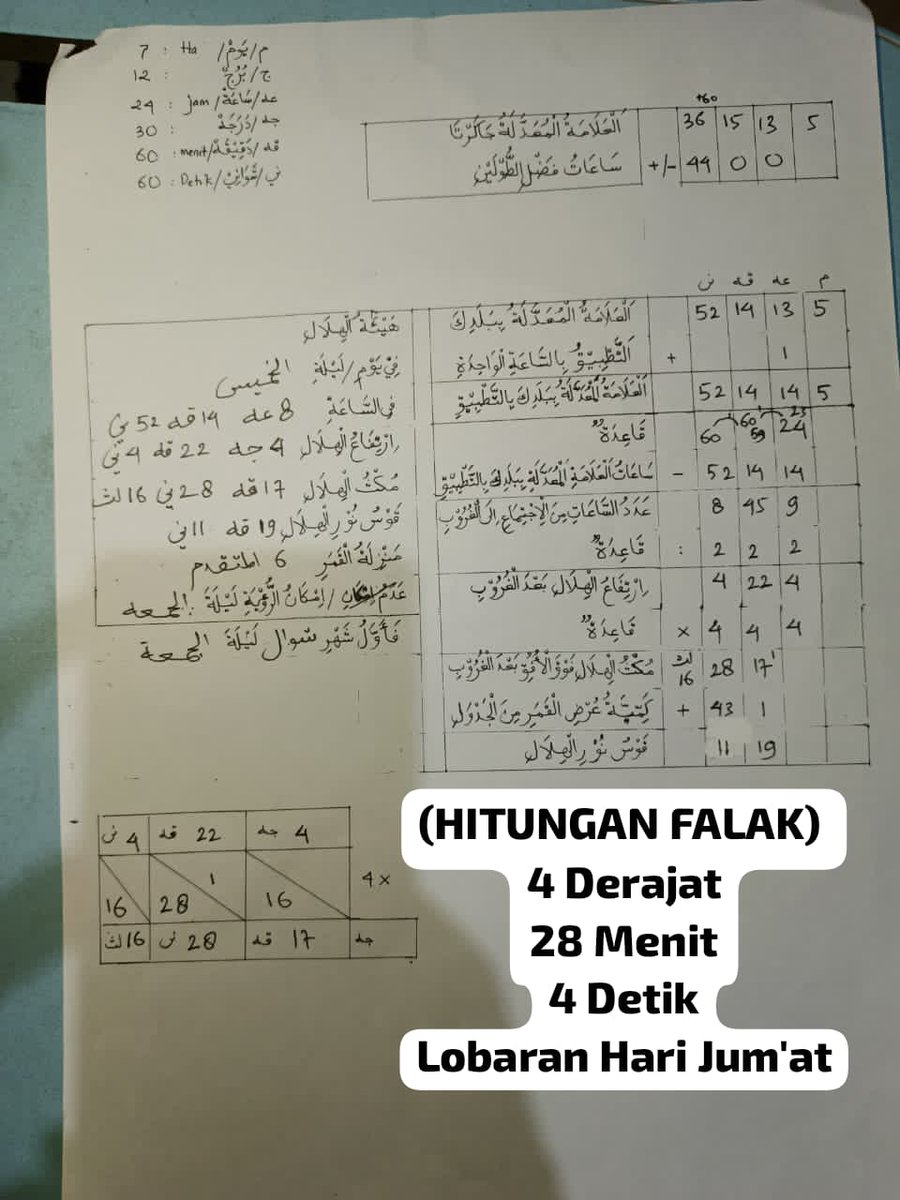 م/يَوْمٌ/ Ha : 7
ج/بُرْجٌ : 12
عه/سَاعَةٌ/ jam : 24
جه/دَرَجَةٌ : 30
قه/دَقِيْقَةٌ/ menit : 60
ني/ثَوَانِيْ/ Detik : 60
+60
اَلْعَلَامَةُ الْمُعَدَّلَةُ جَاكَرْتَا 36 15 13 5
سَاعَاتُ فَضْلِ الطُّوْلَيْنِ +/- 44 0 0
م عه قه ني
اَلْعَلَامَةُ الْمُعَدَّلَةُ بِبَلَدِكَ 52 14 13 5
اَلتَّطْبِيْقُ بِالسَّاعَةِ الْوَاحِدَةِ + 1
اَلْعَلَامَةُ الْمُعَدَّلَةُ بِبَلَدِكَ بِالتَّطْبِيْقِ 52 14 14 5
60 23
قَاعِدَةٌ 60 59 24
سَاعَاتُ الْعَلَامَةِ الْمُعَدَّلَةِ بِبَلَدِكَ بِالتَّطْبِيْقِ - 52 14 14
عَدَدُ السَّاعَاتِ مِنَ الْاِجْتِمَاعِ اِلَى الْغُرُوْبِ 8 45 9
قَاعِدَةٌ : 2 2 2
اِرْتِفَاعُ الْهِلَالِ بَعْدَ الْغُرُوْبِ 4 22 4
قَاعِدَةٌ × 4 4 4
مُكْثُ الْهِلَالِ فَوْقَ الْأُفُقِ بَعْدَ الْغُرُوْبِ 16 لث 28 17 1
كَمِّيَّةُ عَرْضِ الْقَمَرِ مِنَ الْجَدْوَلِ + 43 1
قَوْسُ نُوْرِ الْهِلَالِ 11 19
هَيْئَةُ الْهِلَالِ
فِيْ يَوْمِ/لَيْلَةِ الخميس
فِى السَّاعَةِ 8 عه 14 قه 52 ني
اِرْتِفَاعُ الْهِلَالِ 4 جه 22 قه 4 ني
مُكْثُ الْهِلَالِ 17 قه 28 ني 16 لث
قَوْسُ نُوْرِ الْهِلَالِ 19 قه 11 ني
مَنْزِلَةُ الْقَمَرِ 6 المتقدم
عَدَمُ اِمْكَانِ/اِمْكَانُ الرُّؤْيَةِ لَيْلَةَ : الجمعة
فَأَوَّلُ شَهْرِ شوال لَيْلَةَ الجمعة
4 جه 22 قه 4 ني
4 × 16 1 28 16
جه 17 قه 28 ني 16 لث
(HITUNGAN FALAK)
4 Derajat
28 Menit
4 Detik
Lobaran Hari Jum'at